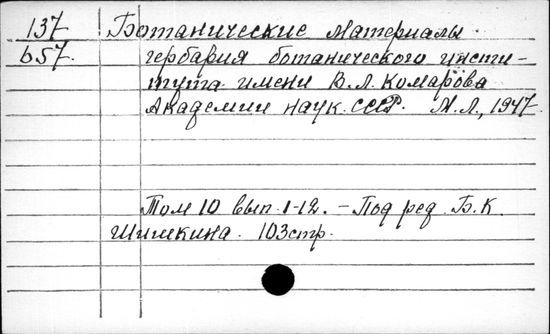 137 Ботанические материалы
б57. гербария ботанического инсти-
тута имени В.Л. Комарова
Академии наук СССР. М.Л., 1947.
Том 10 вып. 1-12. - Под ред. Б.К.
Шишкина. 103стр.